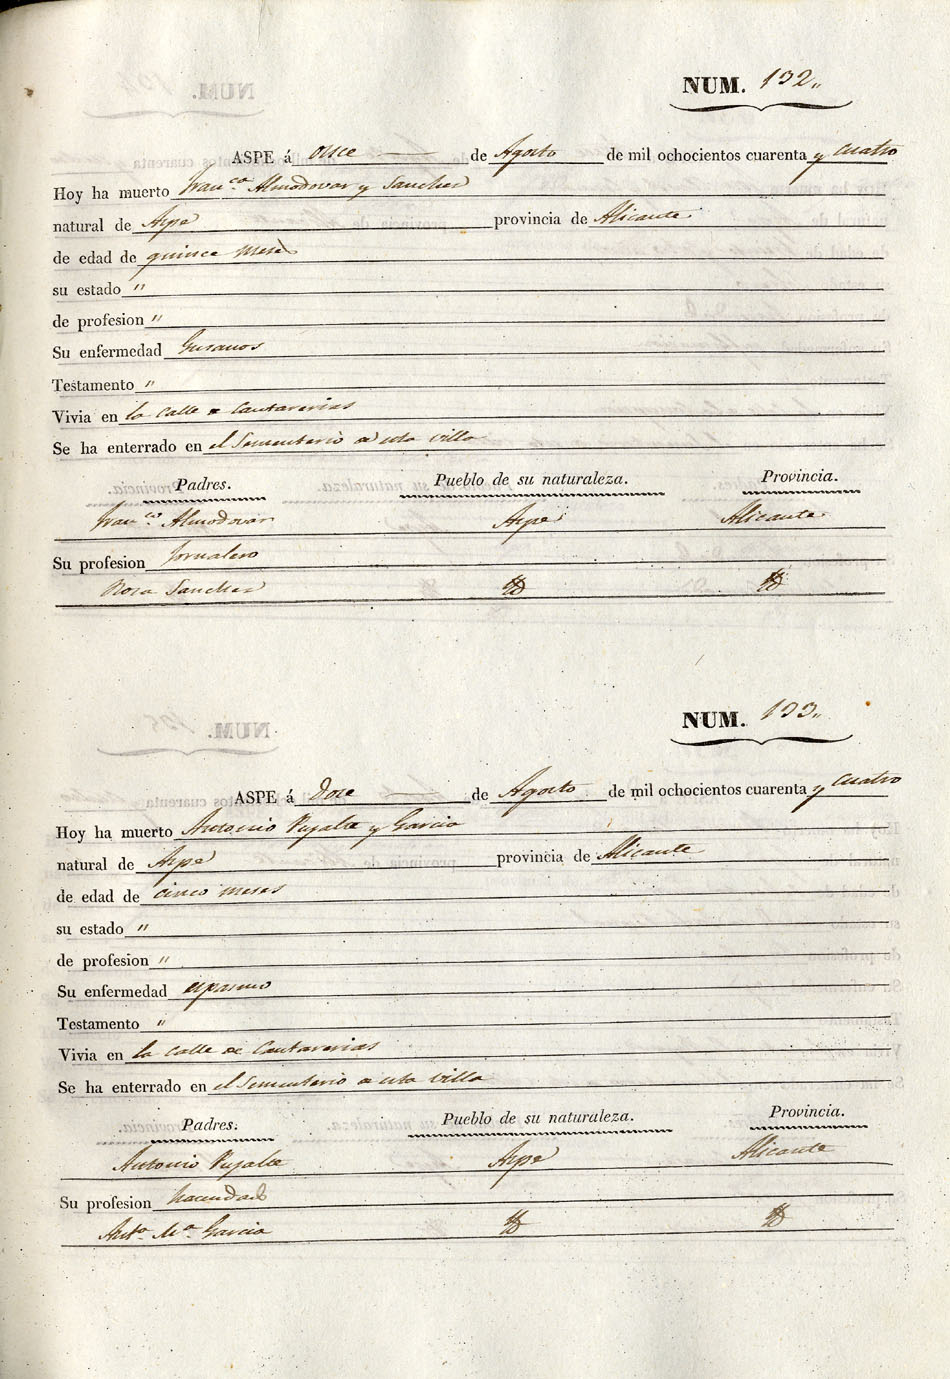 NUM. 132,,
ASPE á once de Agosto de mil ochocientos cuarenta y cuatro
Hoy ha muerto Franco. Almodovar y Sanchez
natural de Aspe provincia de Alicante
de edad de quince meses
su estado "
de profesion "
Su enfermedad Gusanos
Testamento "
Vivia en la calle de Cantarerias
Se ha enterrado en el Sementerio de esta villa
Padres. Pueblo de su naturaleza. Provincia.
Franco. Almodovar Aspe Alicante
Su profesion Jornalero
Rosa Sanchez
NUM. 133,,
ASPE á doce de Agosto de mil ochocientos cuarenta y cuatro
Hoy ha muerto Antonio Pujalte y Garcia
natural de Aspe provincia de Alicante
de edad de cinco meses
su estado "
de profesion "
Su enfermedad espasmo
Testamento "
Vivia en la calle de Cantarerias
Se ha enterrado en el Sementerio de esta villa
Padres. Pueblo de su naturaleza. Provincia.
Antonio Pujalte Aspe Alicante
Su profesion hacendado
Anta. Ma. Garcia